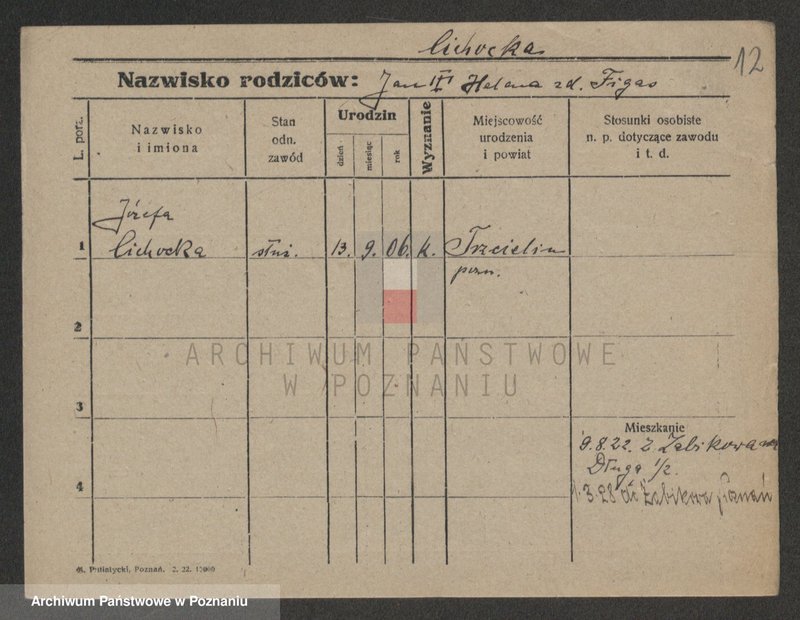 Cichocka
12
Nazwisko rodziców: Jan III Helena zd. Figas
L. porz.
Nazwisko
i imiona
Stan
odn.
zawód
Urodzin
dzień
miesiąc
rok
Wyznanie
Miejscowość
urodzenia
i powiat
Stosunki osobiste
n. p. dotyczące zawodu
i t. d.
Józefa
1 Cichocka służ. 13. 9. 06. k. Trzcielin
pozn.
2
ARCHIWUM PAŃSTWOWE
W POZNANIU
3
Mieszkanie
9.8.22. z Żabikowa
Długa 1/2.
4
1.3.28 do Żabikowa Poznań
M. Putiatycki, Poznań. 2. 22. 15000
Archiwum Państwowe w Poznaniu